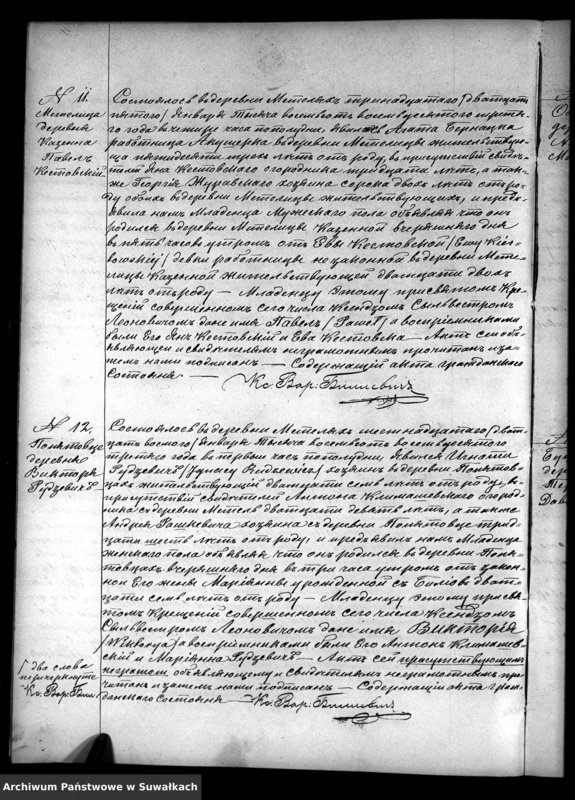 N 11.
Метелица
деревня
Казенна
Павелъ
Кестовскій
Состоялось въ деревни Метеляхъ тринадцатаго /двадцать
пятаго/ Января Тысяча восемьсотъ восемьдесятого третя-
го года въ четыре часа пополудни, явилась Агата Бернацка
работница Акушерка въ деревни Метелицы жительствую-
ща пятьдесяти трохъ лѣтъ отъ роду, въ присутствіи свидѣ-
телей Яна Кестовскаго огородника тридцати лѣтъ, а так-
же Георгія Журавскаго хозяина сорока двохъ лѣтъ отъ ро-
ду обоихъ въ деревни Метелицы жительствующихъ, и предъ-
явила намъ Младенца Мужескаго пола объявляя что онъ
родился въ деревни Метелицы Казенной вчерашняго дня
въ пять часовъ утромъ отъ Евы Кестовской /Ewy
/ дѣвки работницы незаконной въ деревни Мете-
лицы Казенной жительствующей двадцати двохъ
лѣтъ отъ роду — Младенцу этому при святомъ Кре-
щеніи совершенномъ сего числа Ксендзомъ Сыльвестромъ
Леоновичомъ дано имя Павелъ /Paweł/ а воспріемниками
были Его Янъ Кестовскій и Ева Кестовска — Актъ сей объ-
являющей и свидѣтелямъ неграмотнымъ прочитанъ и за-
темъ нами подписанъ — Содержащій акта гражданскаго
Состоянія —
Кс. Вар: Вилпевичъ
N 12.
Понятовце
деревня
Викторія
Рудзевичъ
Состоялось въ деревни Метеляхъ шестнадцатаго /двад-
цать восмого/ Января Тысяча восемьсотъ восемьдесятого
третяго года въ первый часъ пополудни, явился Игнатій
Рудзевичъ /Ignacy Rudziewicz/ хозяинъ въ деревни Понятов-
цахъ жительствующій двадцати семь лѣтъ отъ роду, въ
присутствіи свидѣтелей Антона Климашевскаго огород-
ника съ деревни Метель двадцати девять лѣтъ, а также
Андрея Рашкевича хозяина съ деревни Понятовце трид-
цати шесть лѣтъ отъ роду и предъявилъ намъ Младенца
женскаго пола объявляя что онъ родился въ деревни Поня-
товцахъ вчерашняго дня въ три часа утромъ отъ закон-
ной Его жены Маріянны урожденной съ двад-
цати семь лѣтъ отъ роду — Младенцу этому при свя-
томъ Крещеніи совершенномъ сего числа Ксендзомъ
Сыльвестромъ Леоновичомъ дано имя Викторія
/Wiktorya/ а воспріемниками были Его Антонъ Климашев-
скій и Маріянна Рудзевичъ — Актъ сей присутствующимъ
неграмот. объявляющему и свидѣтелямъ неграмотнымъ про-
читанъ и затемъ нами подписанъ — Содержащій акта граж-
данскаго Состоянія —
Кс. Вар: Вилпевичъ
/два слова
перечеркнуто
Кс. Вар: Вилп.
Archiwum Państwowe w Suwałkach